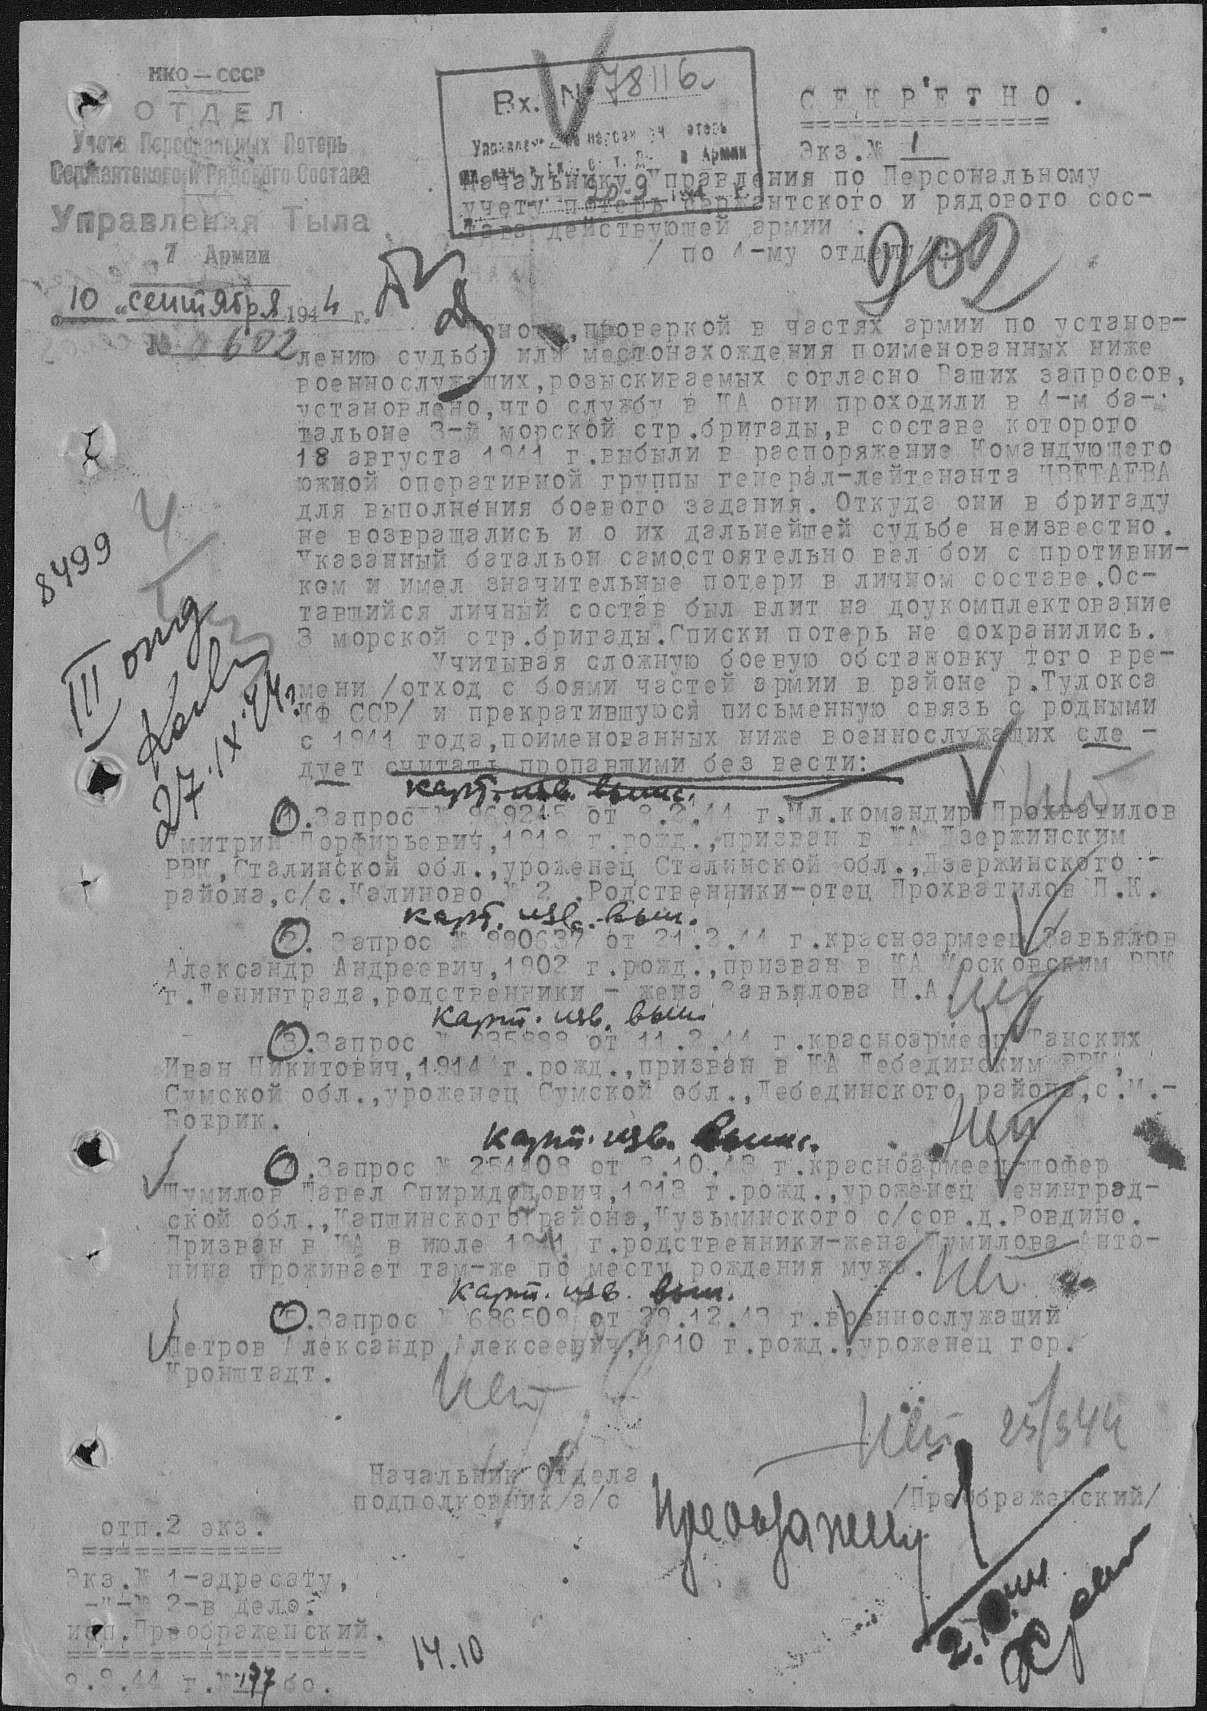 НКО — СССР
ОТДЕЛ
Учета Персональных Потерь
Сержантского и Рядового Состава
Управления Тыла
7 Армии
"10" сентября 1944 г.
№ 0602
Вх. № 78116
СЕКРЕТНО.
Экз.№ 1
Начальнику Управления по Персональному
учету потерь сержантского и рядового сос-
тава действующей армии.
/ по 4-му отделу
902
проверкой в частях армии по установ-
лению судьбы или местонахождения поименованных ниже
военнослужащих,розыскиваемых согласно Ваших запросов,
установлено,что службу в КА они проходили в 4-м ба-
тальоне 3-й морской стр.бригады,в составе которого
18 августа 1941 г.выбыли в распоряжение Командующего
южной оперативной группы генерал-лейтенанта ЦВЕТАЕВА
для выполнения боевого задания. Откуда они в бригаду
не возвращались и о их дальнейшей судьбе неизвестно.
Указанный батальон самостоятельно вел бои с противни-
ком и имел значительные потери в личном составе.Ос-
тавшийся личный состав был влит на доукомплектование
3 морской стр.бригады.Списки потерь не сохранились.
Учитывая сложную боевую обстановку того вре-
мени /отход с боями частей армии в районе р.Тулокса
КФ ССР/ и прекратившуюся письменную связь с родными
с 1941 года,поименованных ниже военнослужащих сле -
дует считать пропавшими без вести:
8499
III отд
27.IX.44г.
карт. изв. вып.
1.Запрос № 969245 от 8.2.44 г.Мл.командир Прохватилов
Дмитрий Порфирьевич,1918 г.рожд.,призван в КА Дзержинским
РВК,Сталинской обл.,уроженец Сталинской обл.,Дзержинского -
района,с/с.Калиново № 2. Родственники-отец Прохватилов П.К.
карт. изв. вып.
2. Запрос № 990637 от 21.3.44 г.красноармеец Завьялов
Александр Андреевич,1902 г.рожд.,призван в КА Московским РВК
г.Ленинграда,родственники - жена Завьялова Н.А.
карт. изв. вып.
3.Запрос № 935888 от 11.2.44 г.красноармеец Танских
Иван Никитович,1914 г.рожд.,призван в КА Лебединским РВК,
Сумской обл.,уроженец Сумской обл.,Лебединского района,с.М.-
Ботрик.
карт. изв. вып.
4.Запрос № 254408 от 8.10.43 г.красноармеец-шофер
Шумилов Павел Спиридонович,1913 г.рожд.,уроженец Ленинград-
ской обл.,Капшинского района,Кузьминского с/сов.д.Ровдино.
Призван в КА в июле 1941 г.родственники-жена Шумилова Анто-
нина проживает там-же по месту рождения мужа.
Нет
карт. изв. вып.
5.Запрос № 686509 от 29.12.43 г.военнослужащий
Петров Александр Алексеевич,1910 г.рожд.,уроженец гор.
Кронштадт.
Нет
Нет
Начальник Отдела
подполковник/а/с
/Преображенский/
отп.2 экз.
Экз.№ 1-адресату,
-"-№ 2-в дело.
исп.Преображенский.
9.9.44 г.№ 177 бо.
14.10